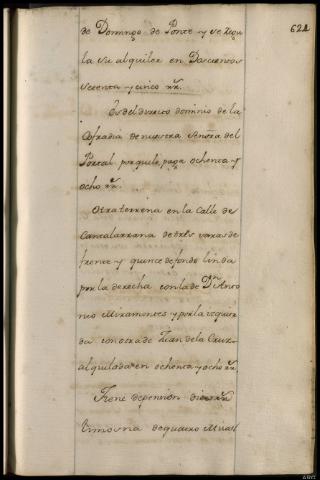 621
de Domingo de Ponte y se regu
la su alquiler en Doscientos
setenta y cinco rr.
Es del directo dominio de la
Cofradia de nuestra Senora del
Portal por que le paga ochenta y
ocho rr.
Otra terrena en la Calle de
Cantalarrana de tres varas de
frente y quince de fondo linda
por la derecha con la de Dn Anto
nio Miramontes y por la izquier
da con otra de Juan de la Cruz
alquilada en ochenta y ocho rr.
Tiene de pension
limosna de quatro Misas